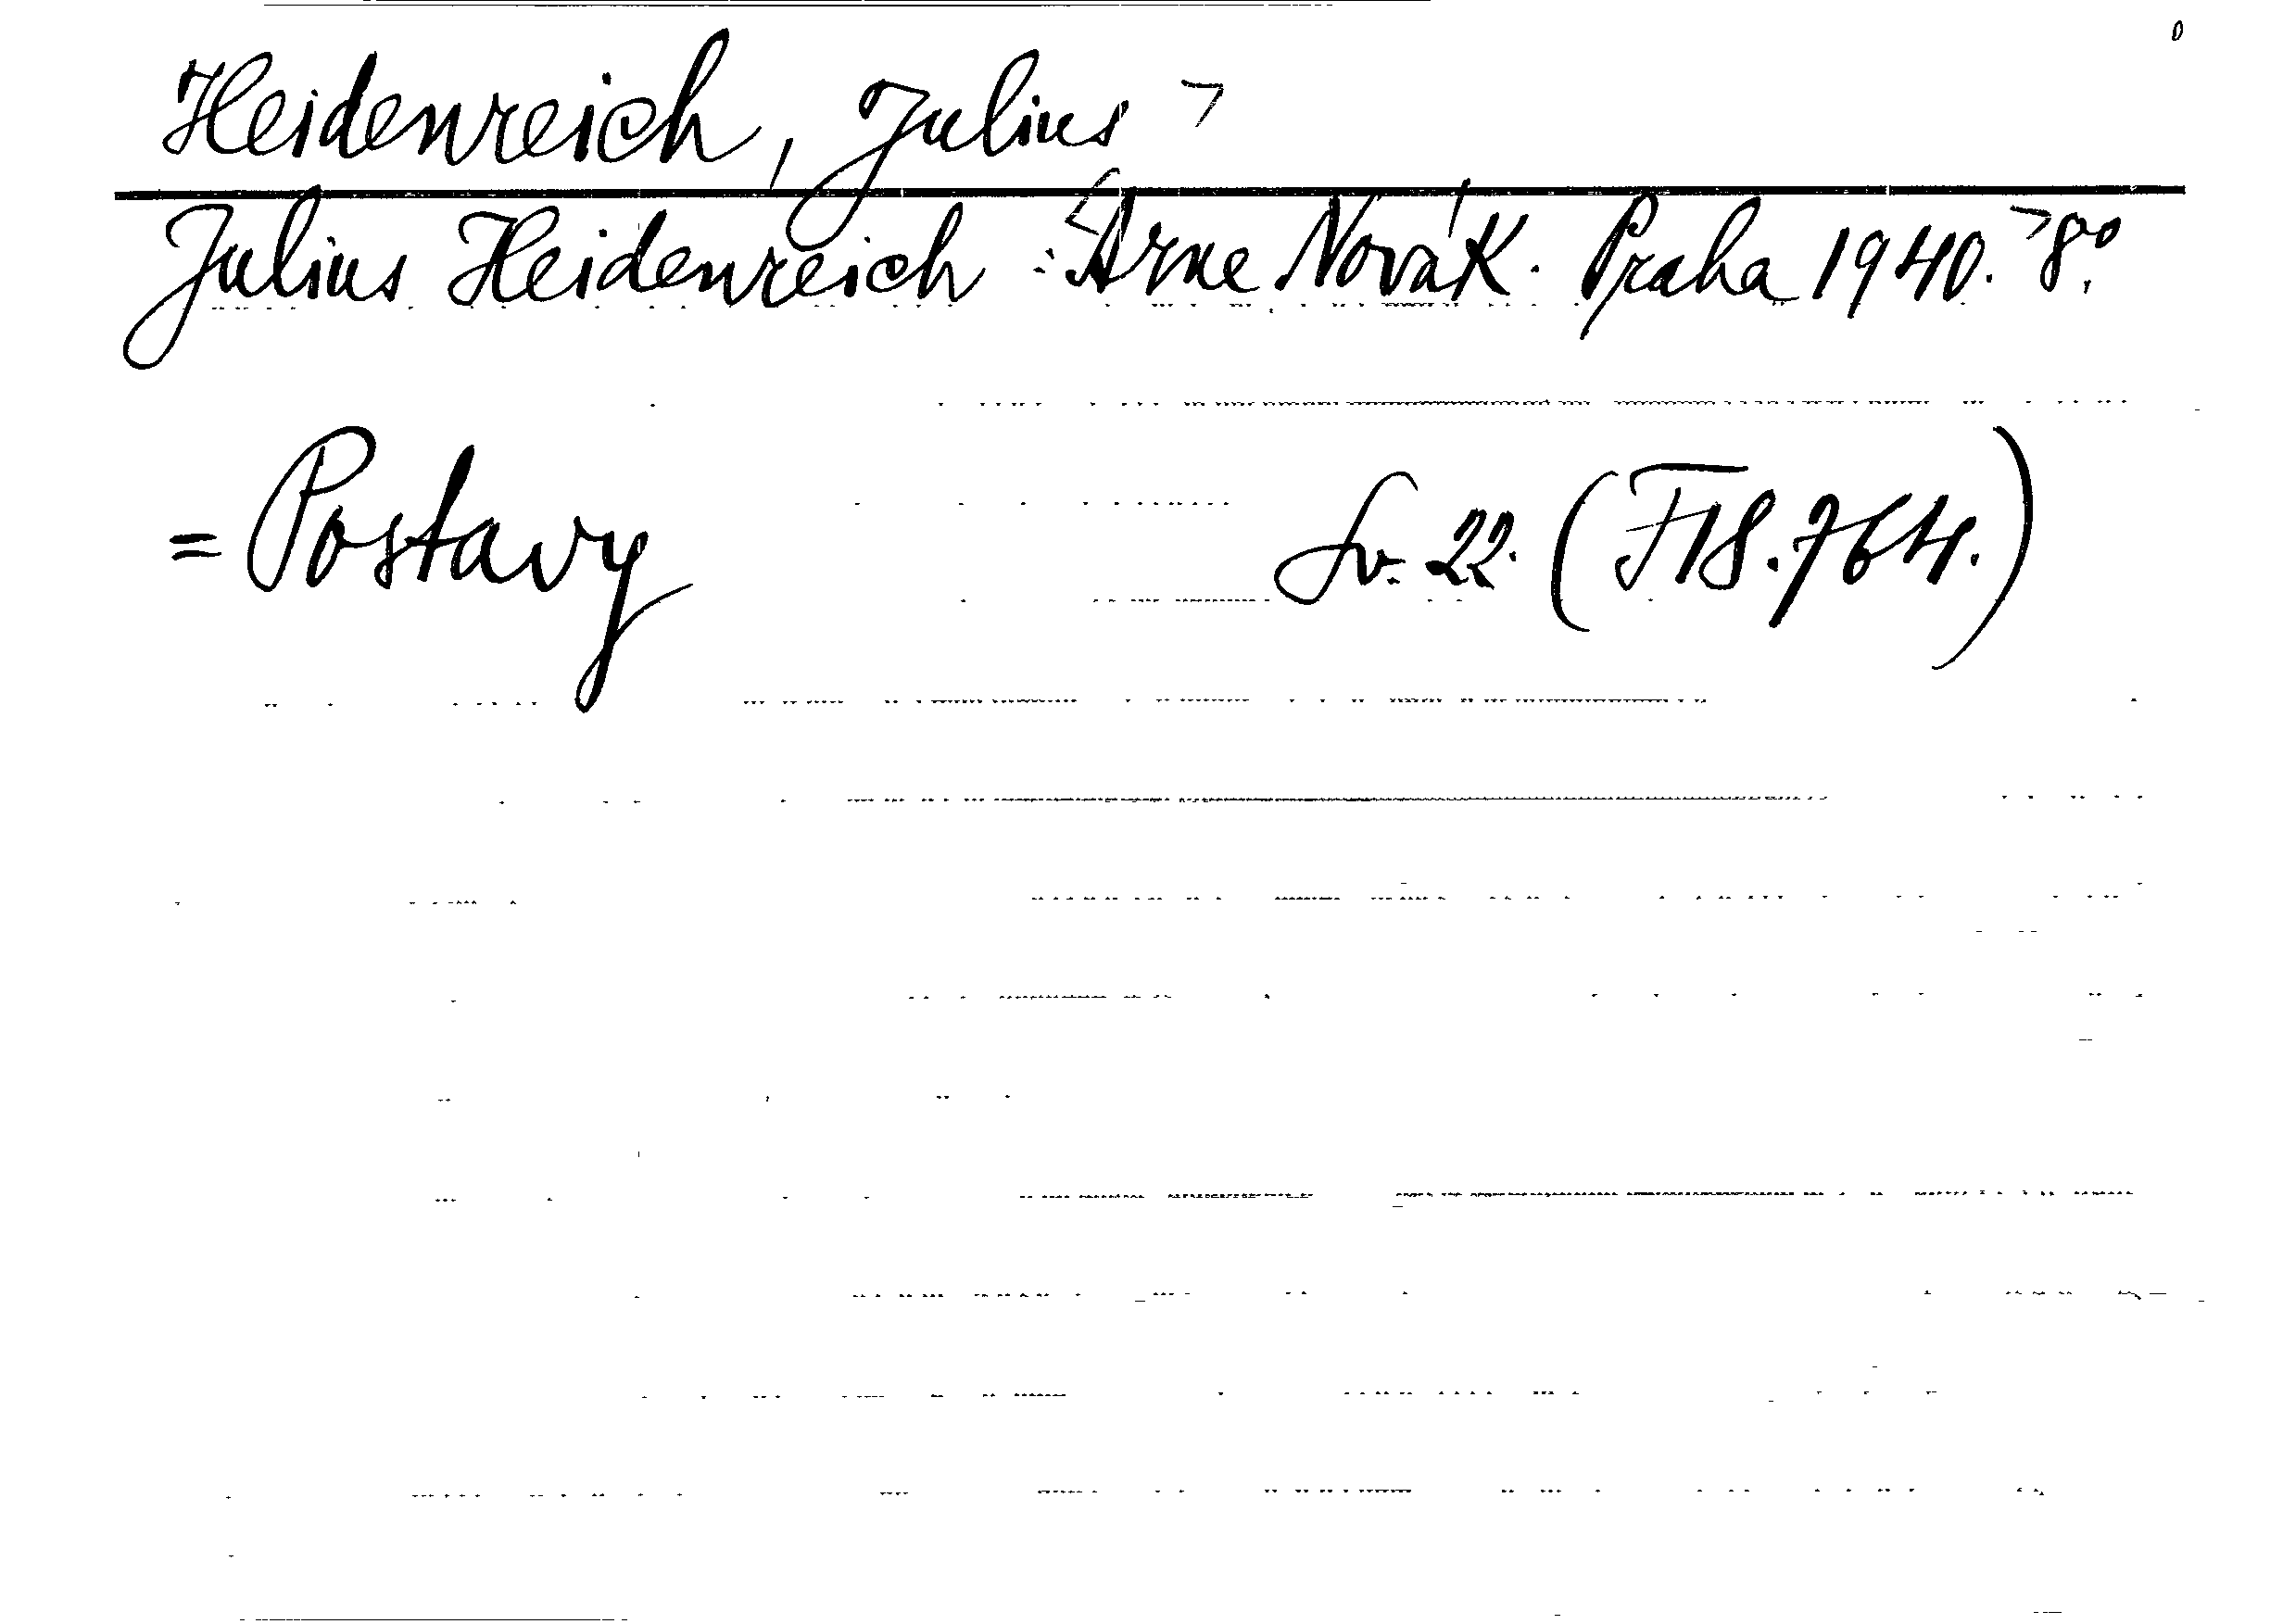 Heidenreich, Julius >
Julius Heidenreich : <Arne Novák. Praha 1940.> 8°.
= Postavy Sv. 22. (F 18.764.)